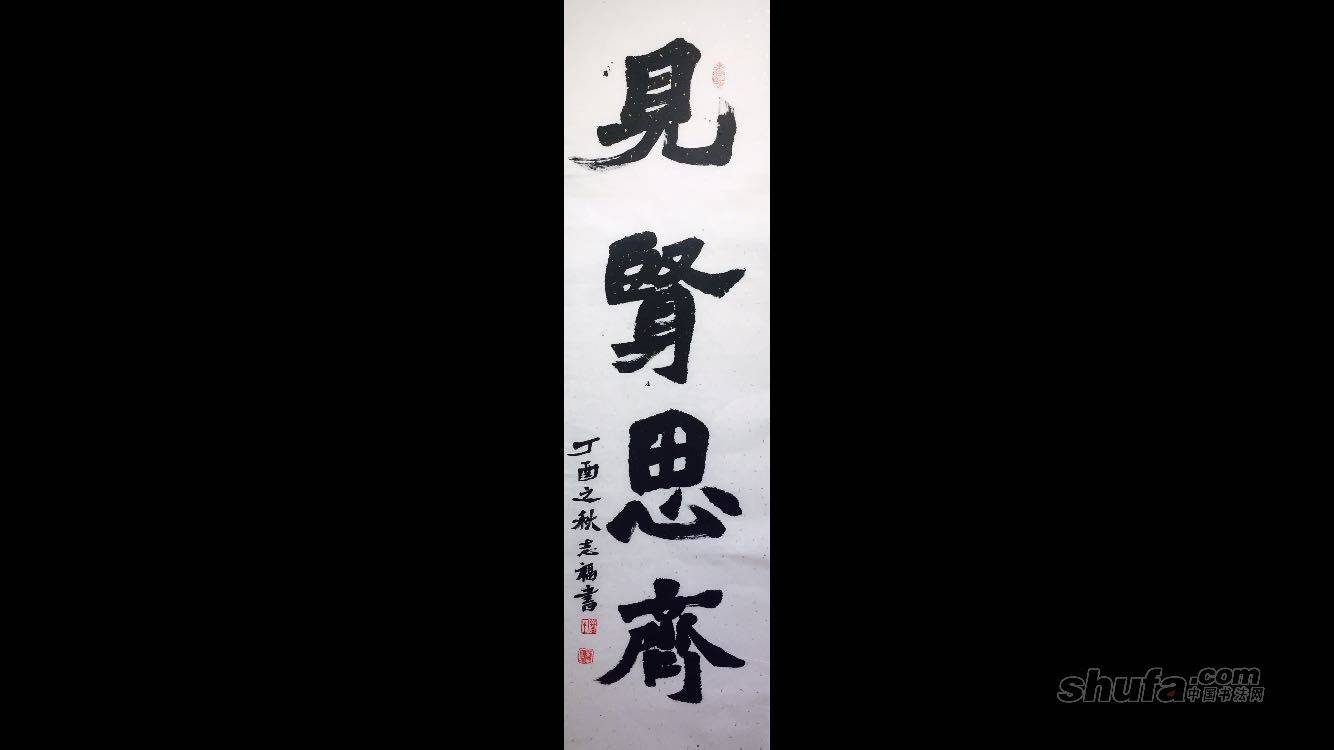 見賢思齊
丁酉之秋志福書
shufa.com
中国书法网